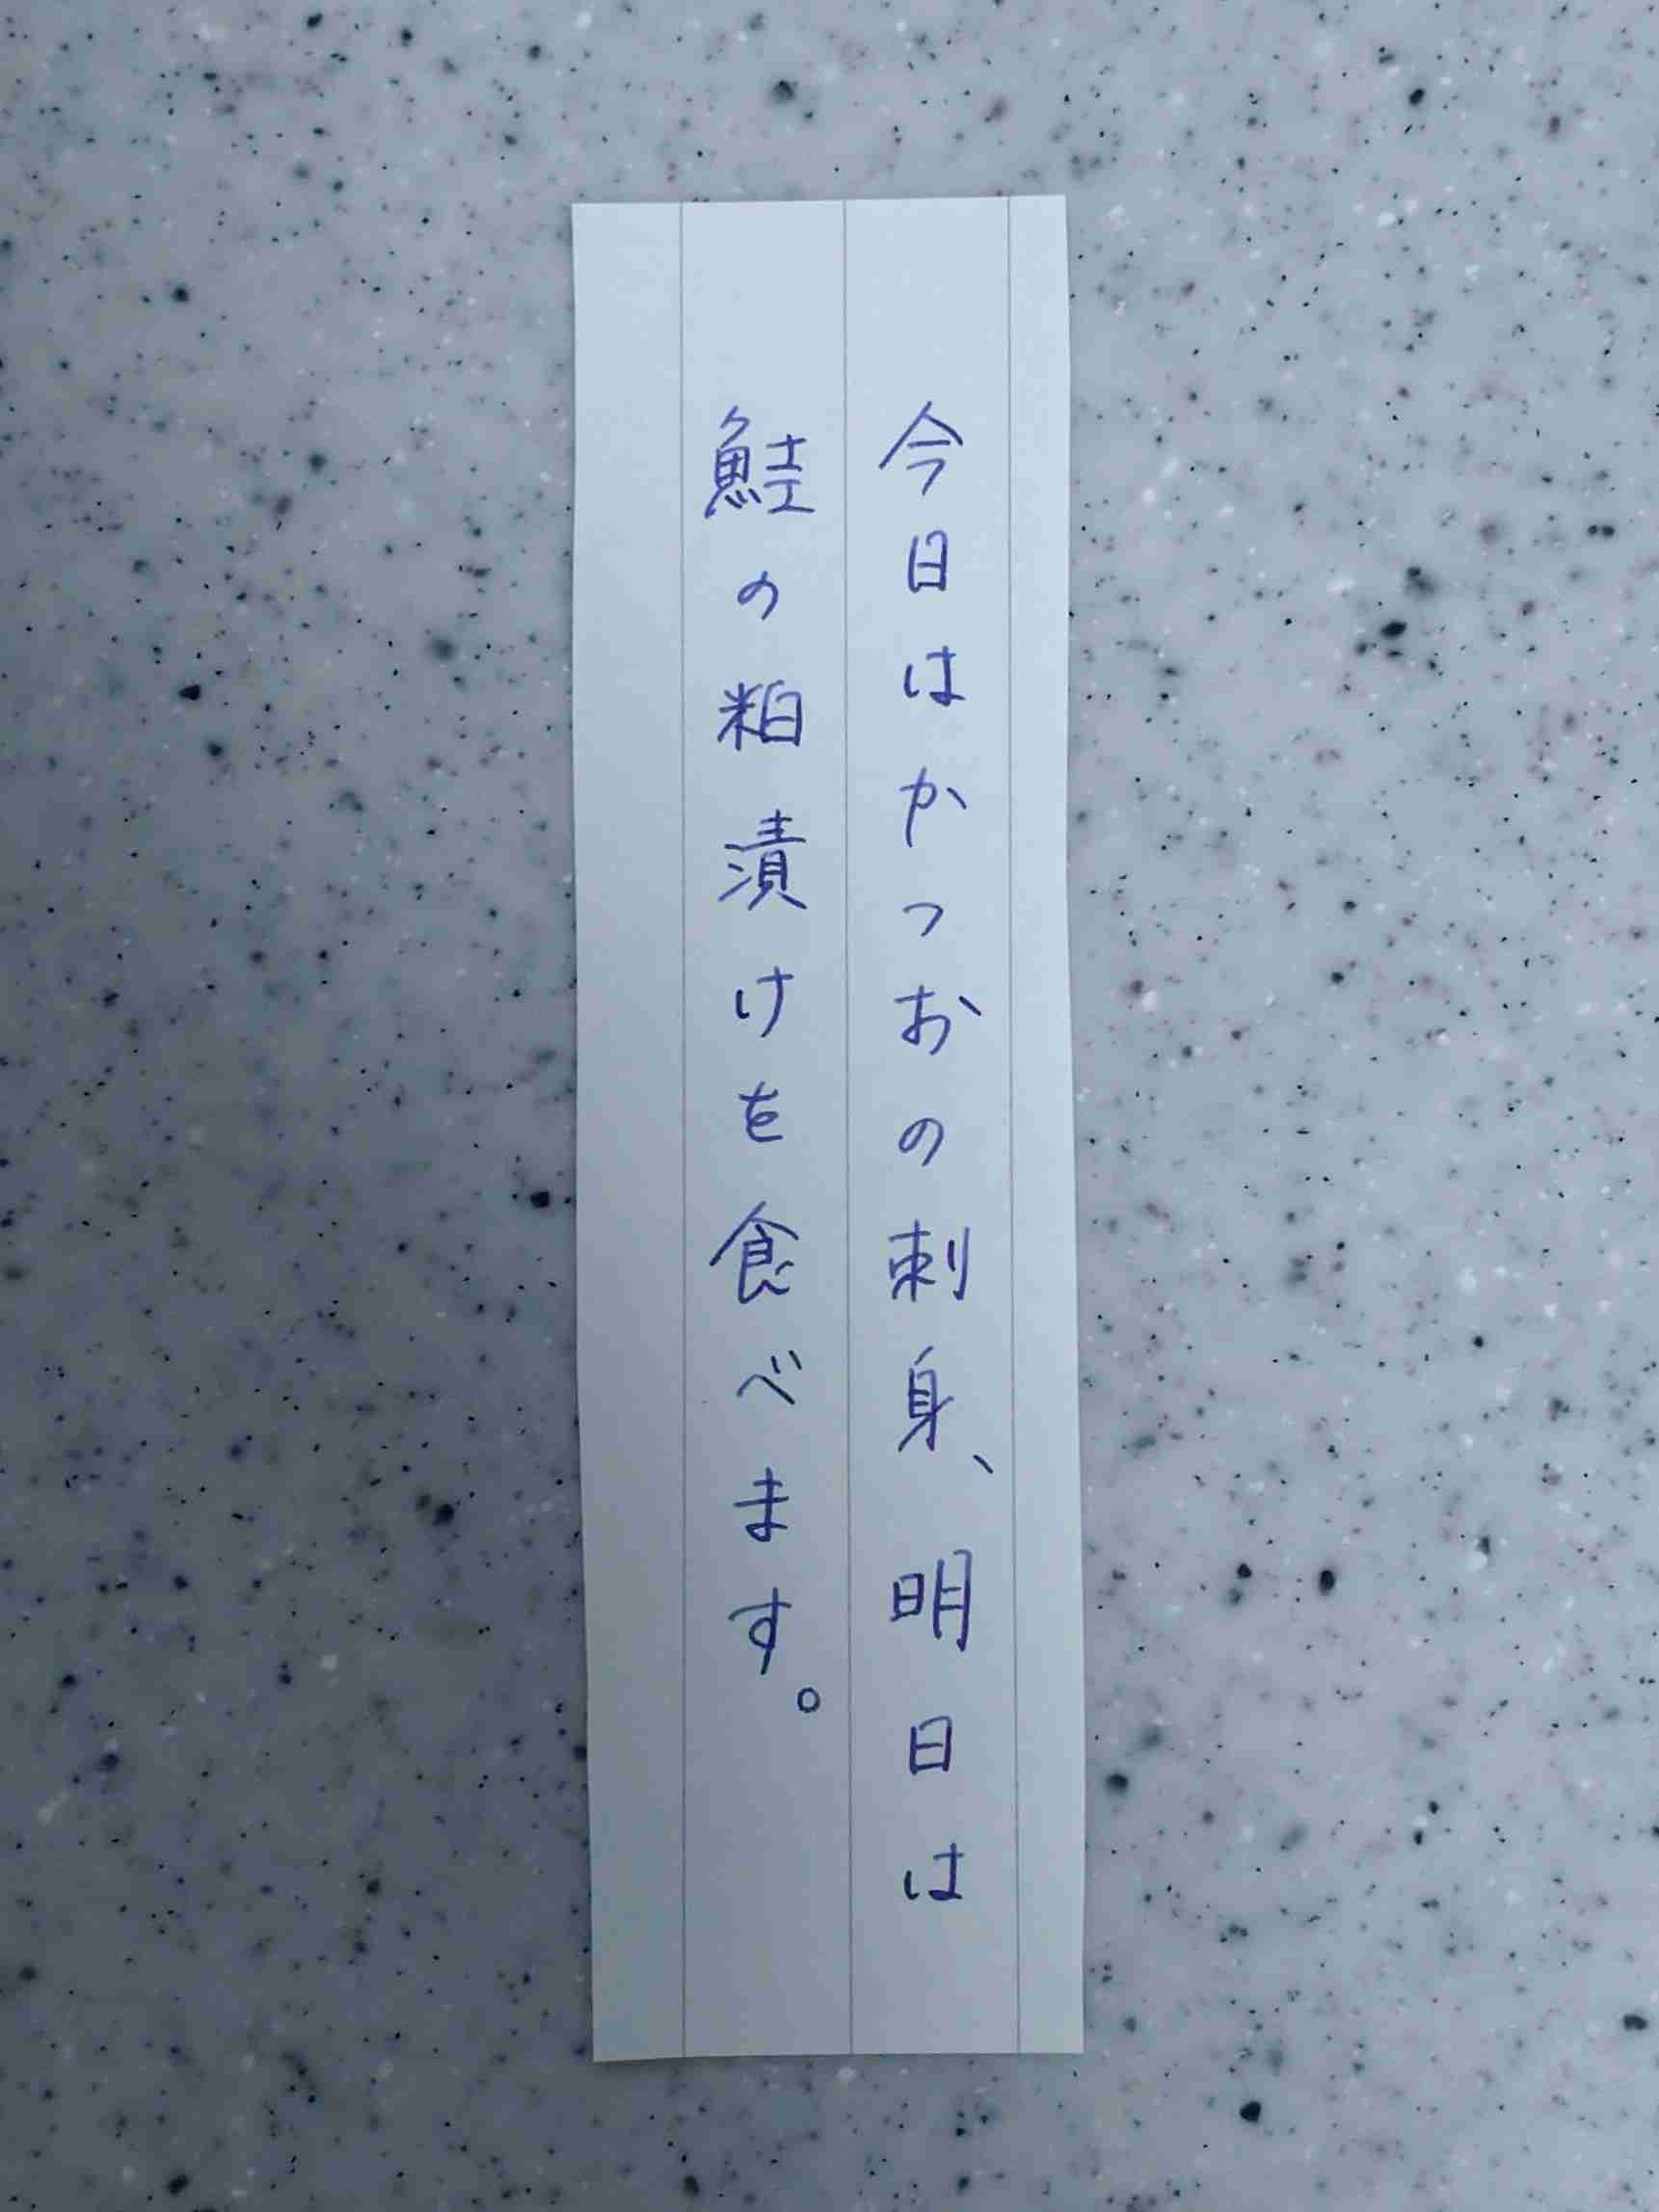 今日はかつおの刺身、明日は
鮭の粕漬けを食べます。